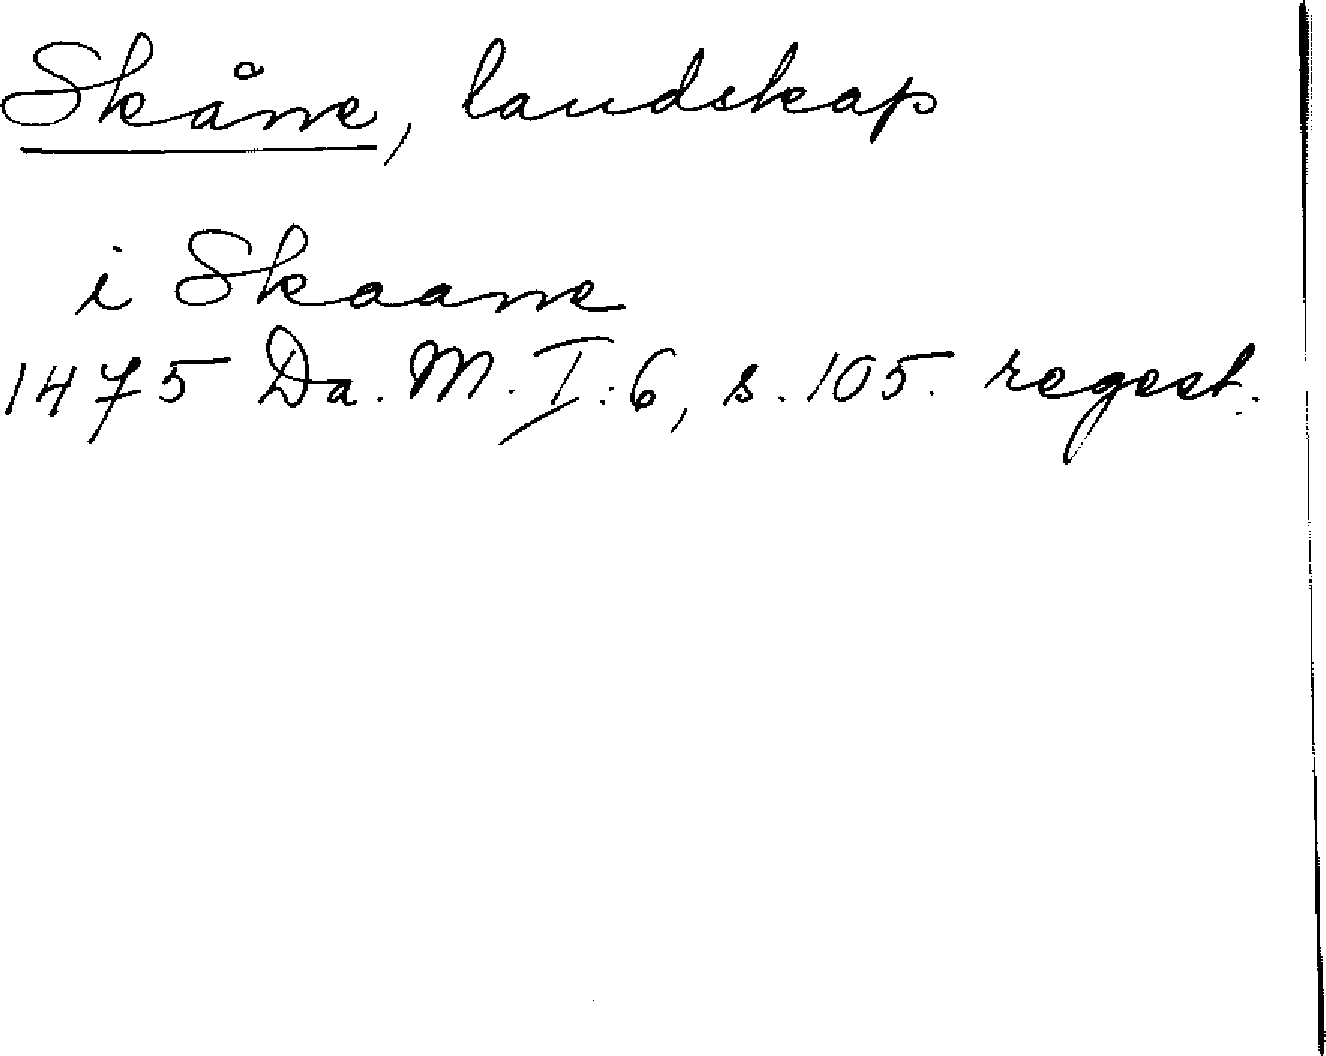 Skåne, landskap
i Skaane
1475 Da. M. I:6, s. 105. regest.